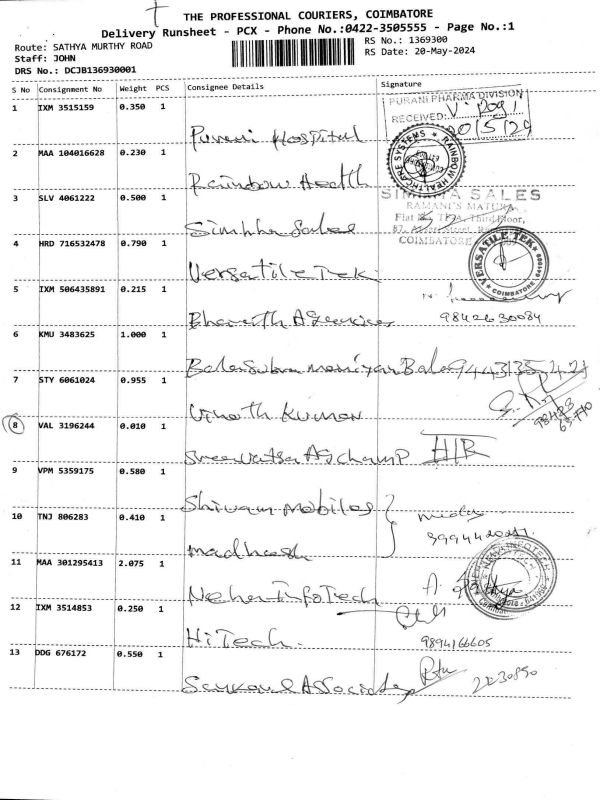 THE PROFESSIONAL COURIERS, COIMBATORE
Delivery Runsheet - PCX - Phone No.:0422-3505555 - Page No.:1
Route: SATHYA MURTHY ROAD
RS No.: 1369300
Staff: JOHN
RS Date: 20-May-2024
DRS No.: DCJB136930001
S No Consignment No Weight PCS Consignee Details Signature
PURANI PHARMA DIVISION
1 IXM 3515159 0.350 1
RECEIVED:
20/5/24
Purani Hospital
RAINBOW HEALTHCARE SYSTEMS
2 MAA 104016628 0.230 1
Rainbow Health
3 SLV 4061222 0.500 1
SALES
RAMANI'S
Third Floor,
Simhha Sales
4 HRD 716532478 0.790 1
COIMBATORE
VERSATILE TEK
COIMBATORE
Versatile Tek
5 IXM 506435891 0.215 1
Bharath Agencies
9842430084
6 KMU 3483625 1.000 1
Balasubramaniyan Bala 9443135421
7 STY 6061024 0.955 1
Vinoth Kumar
8 VAL 3196244 0.010 1
Sreevatsa Agchamp
9 VPM 5359175 0.580 1
Shivam Mobiles
10 TNJ 806283 0.410 1
Madhesh
11 MAA 301295413 2.075 1
NEHA INFOTECH
Neha InfoTech
12 IXM 3514853 0.250 1
HiTech.
9894166605
13 DDG 676172 0.550 1
Associates
2230850